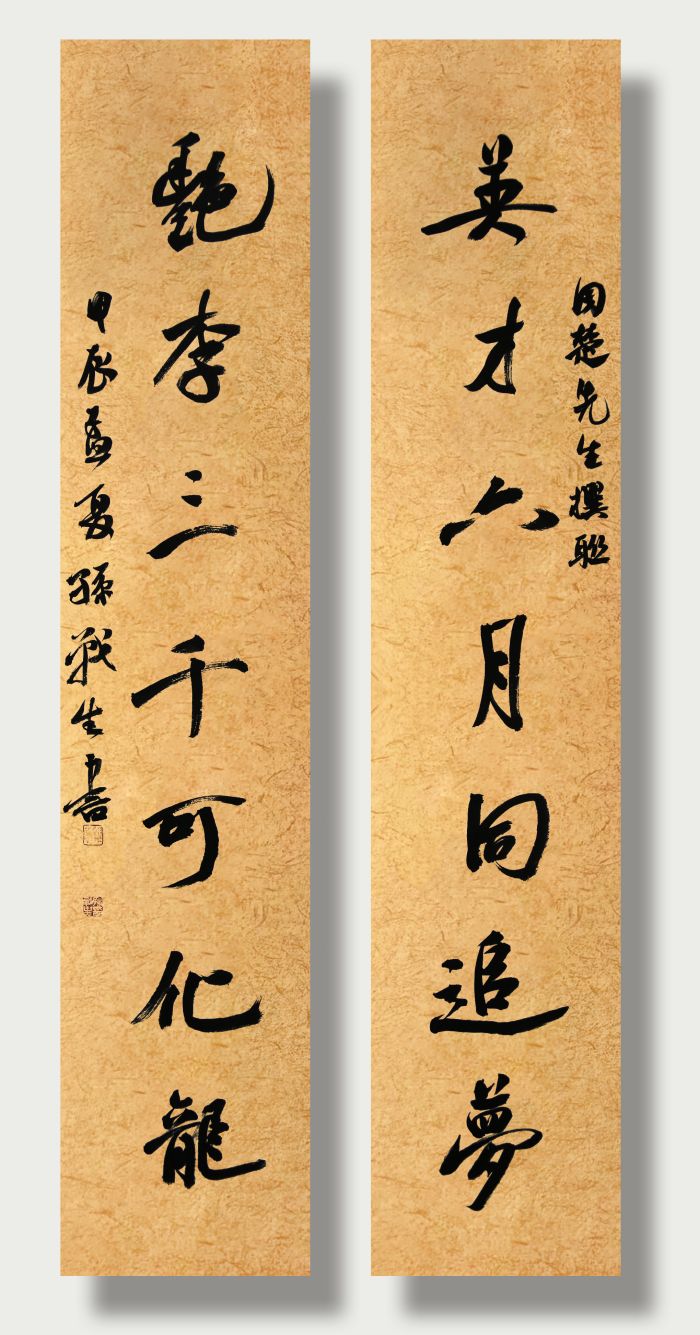 英才六月同追夢
田楚先生撰聯
艷李三千可化龍
甲辰孟夏孫戰生書